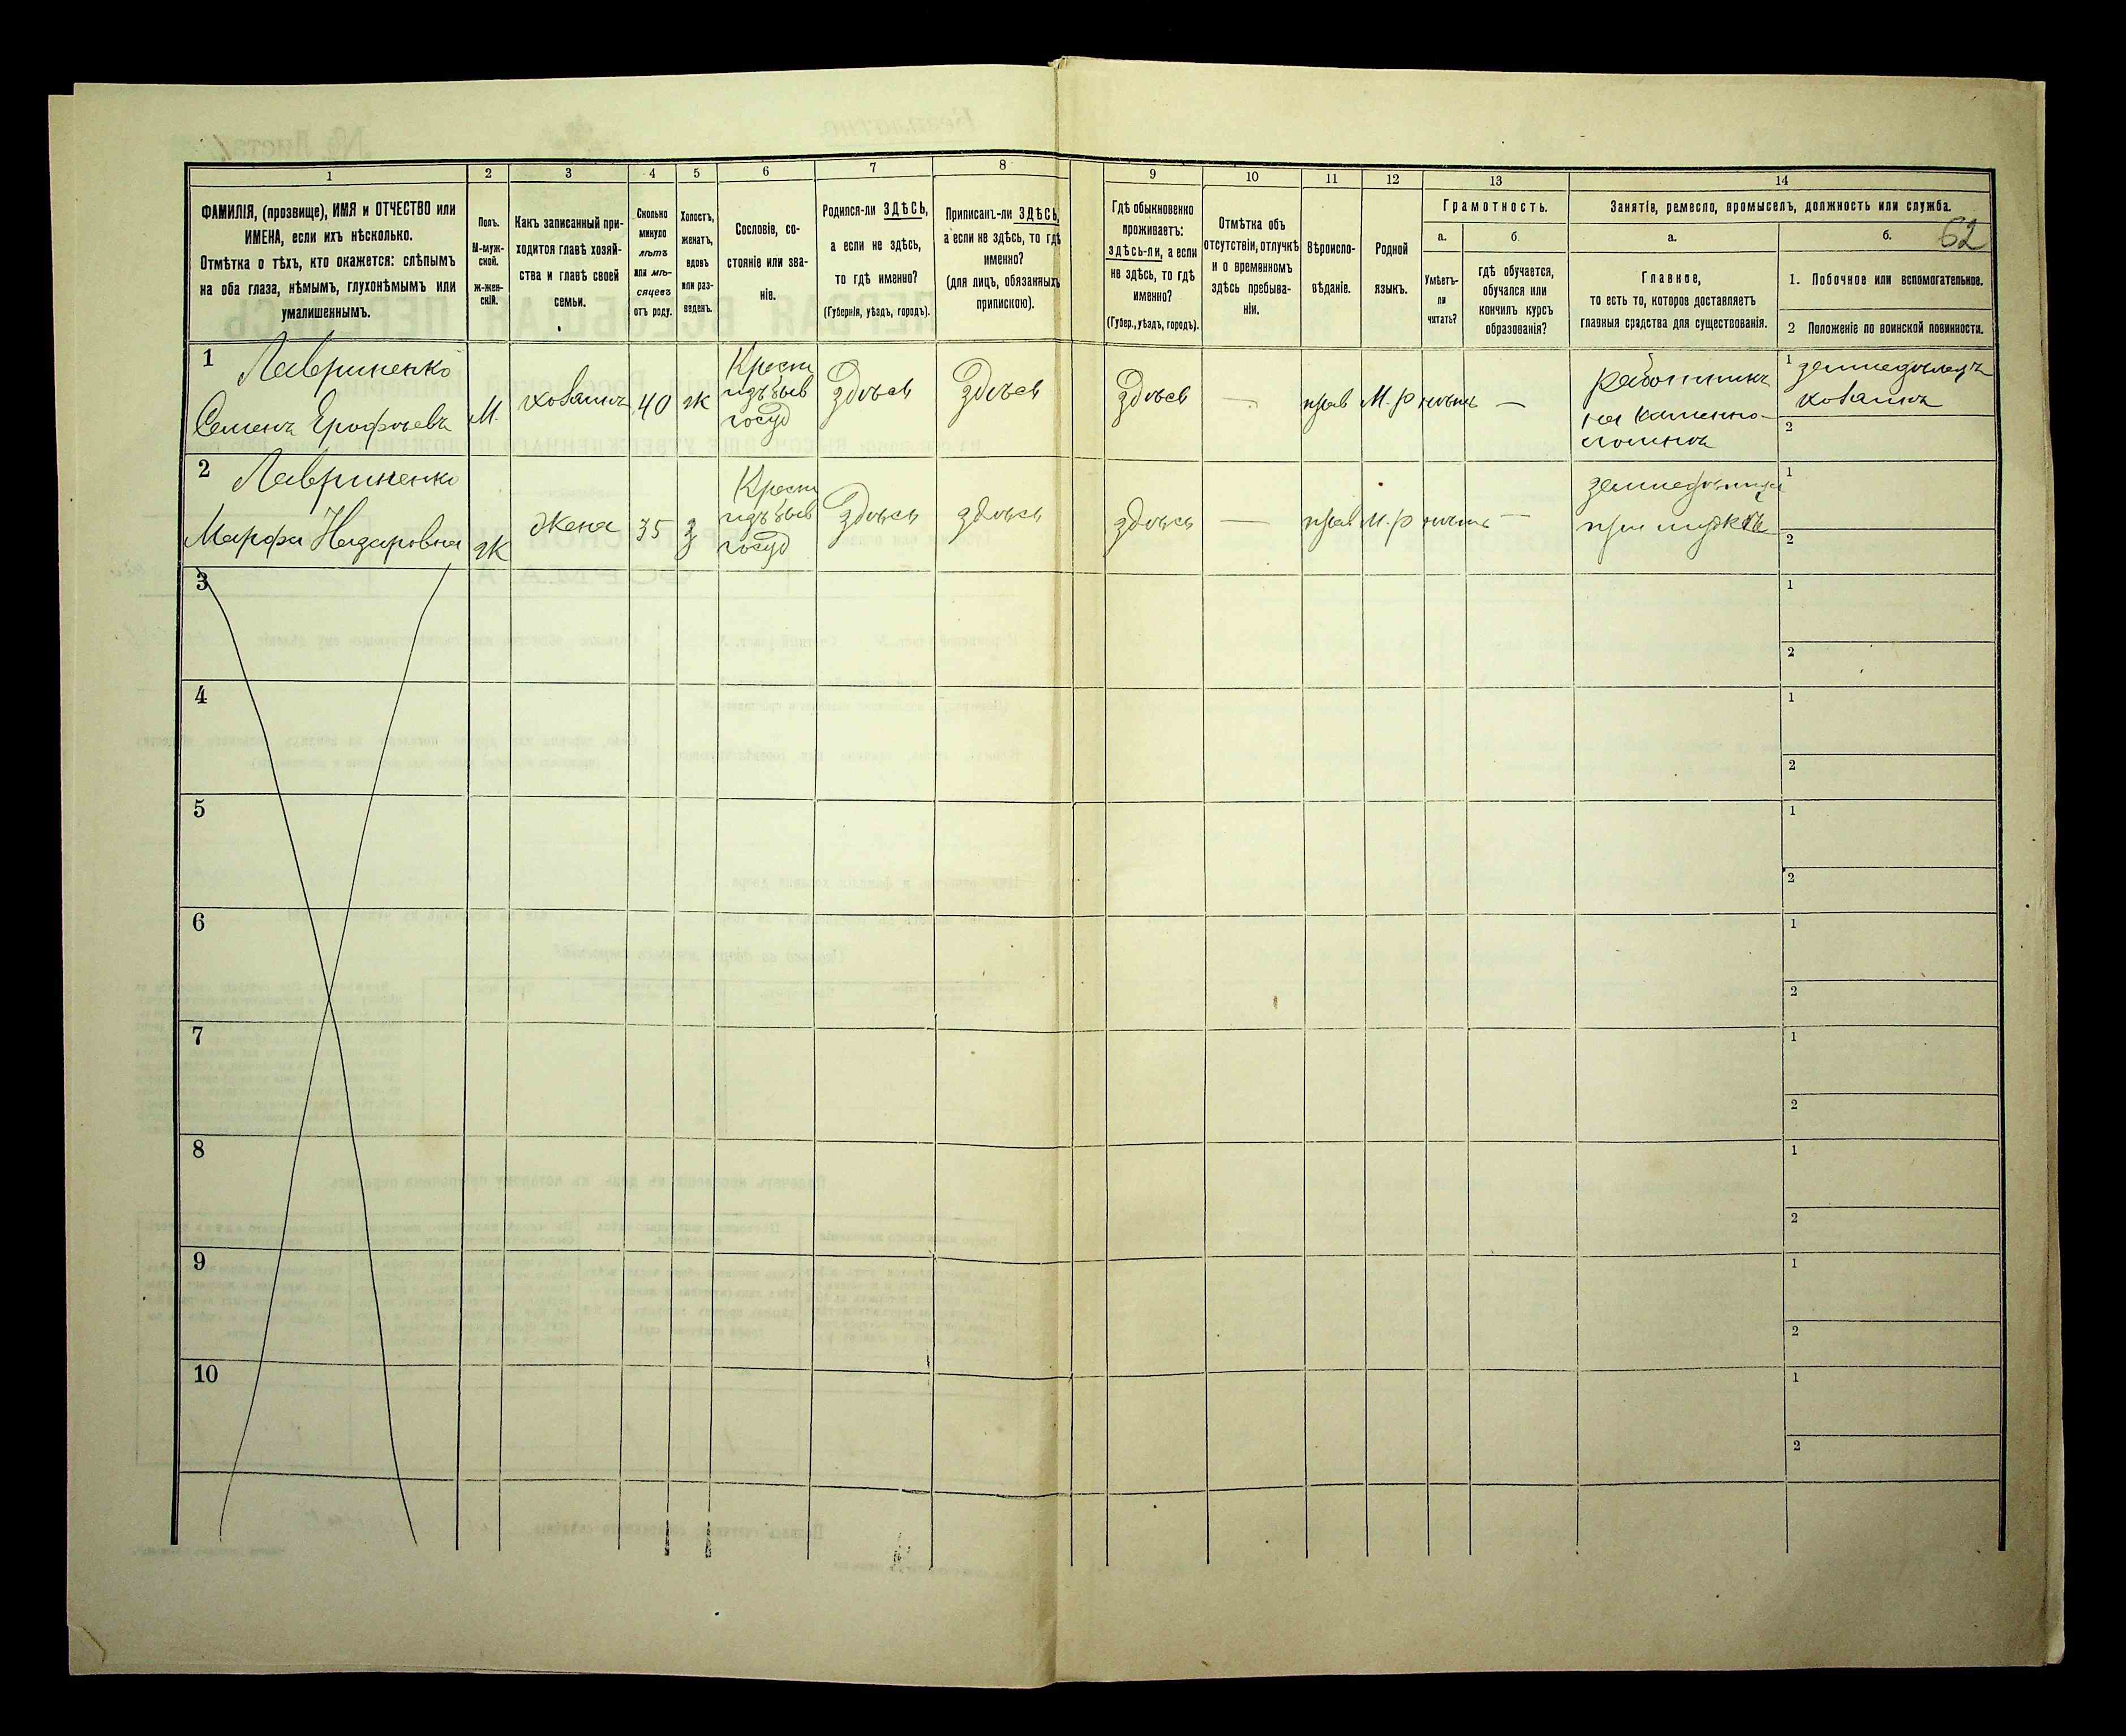 1
2
3
4
5
6
7
8
9
10
11
12
13
14
ФАМИЛІЯ, (прозвище), ИМЯ и ОТЧЕСТВО или
ИМЕНА, если ихъ нѣсколько.
Отмѣтка о тѣхъ, кто окажется: слѣпымъ
на оба глаза, нѣмымъ, глухонѣмымъ или
умалишеннымъ.
Полъ.
М-муж-
ской.
Ж-жен-
скій.
Какъ записанный при-
ходится главѣ хозяй-
ства и главѣ своей
семьи.
Сколько
минуло
лѣтъ
или мѣ-
сяцевъ
отъ роду.
Холостъ,
женатъ,
вдовъ
или раз-
веденъ.
Сословіе, со-
стояніе или зва-
ніе.
Родился-ли ЗДѢСЬ,
а если не здѣсь,
то гдѣ именно?
(Губернія, уѣздъ, городъ).
Приписанъ-ли ЗДѢСЬ,
а если не здѣсь, то гдѣ
именно?
(для лицъ, обязанныхъ
припискою).
Гдѣ обыкновенно
проживаетъ:
ЗДѢСЬ-ли, а если
не здѣсь, то гдѣ
именно?
(Губер., уѣздъ, городъ).
Отмѣтка объ
отсутствіи, отлучкѣ
и о временномъ
здѣсь пребыва-
ніи.
Вѣроиспо-
вѣданіе.
Родной
языкъ.
Грамотность.
а.
Умѣетъ-
ли
читать?
б.
гдѣ обучается,
обучался или
кончилъ курсъ
образованія?
Занятіе, ремесло, промыселъ, должность или служба.
62
а.
Главное,
то есть то, которое доставляетъ
главныя средства для существованія.
б.
1. Побочное или вспомогательное.
2 Положеніе по воинской повинности.
1
Лавриненко
Семенъ Ерофѣевъ
М.
хозяинъ
40
ж
Крест
изъ быв
госуд
здѣсь
здѣсь
здѣсь
—
прав
М.р
нѣтъ
—
работникъ
на каменно-
ломнѣ
1 земледѣлецъ
хозяинъ
2
2
Лавриненко
Марфа Назаровна
ж
Жена
35
з
Крест
изъ быв
госуд
здѣсь
здѣсь
здѣсь
—
прав
м.р
нѣтъ
—
при мужѣ
1
2
3
1
2
4
1
2
5
1
2
6
1
2
7
1
2
8
1
2
9
1
2
10
1
2